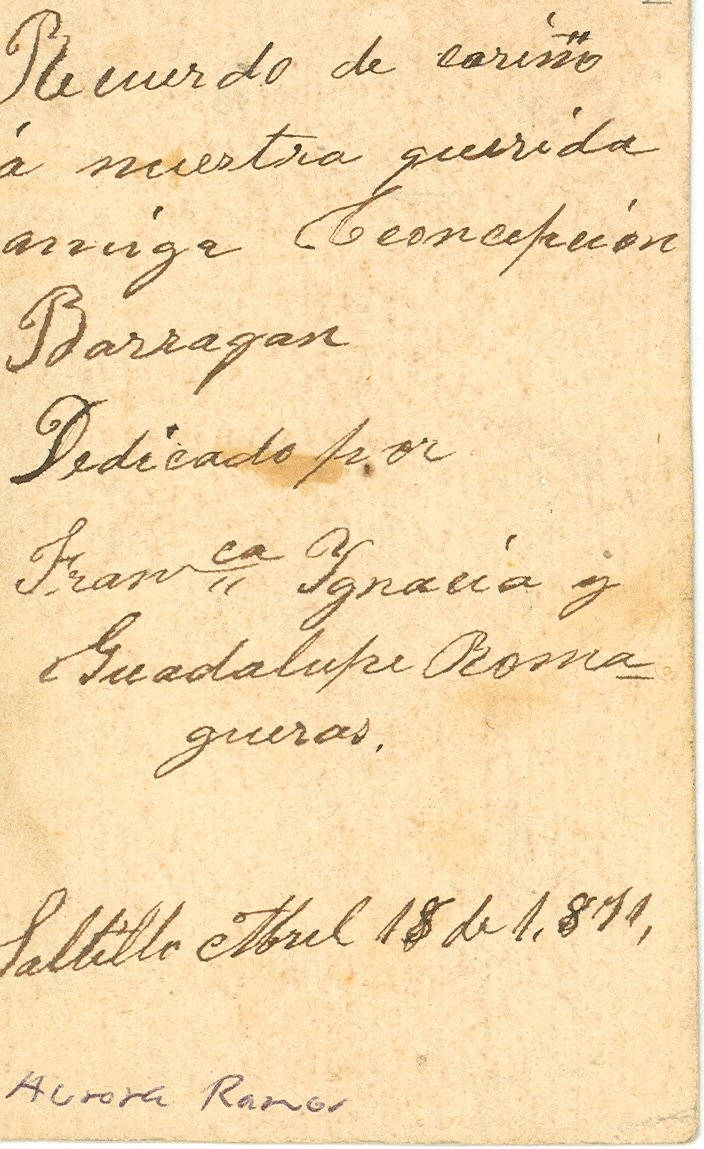 Recuerdo de cariño
á nuestra querida
amiga Concepción
Barragan
Dedicado por
Fran^ca Ygnacia y
Guadalupe Roma-
gueras.
Saltillo Abril 18 de 1,871,
Aurora Ramos